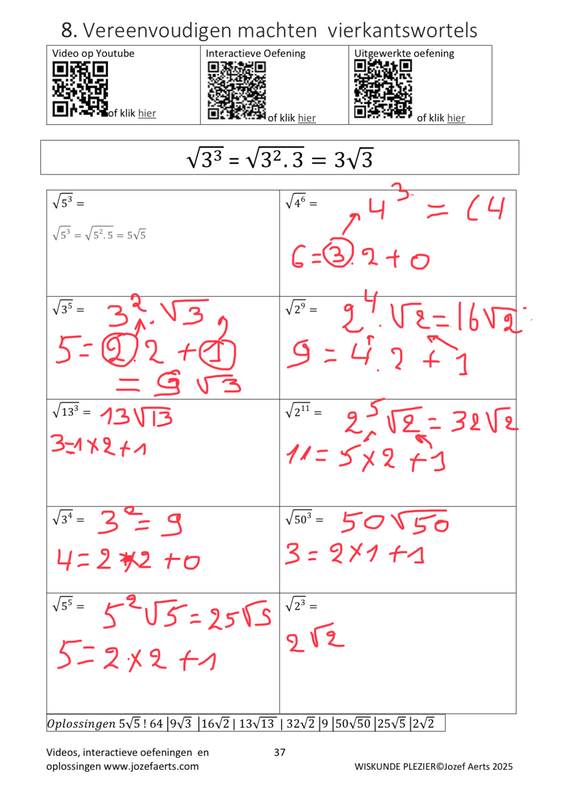 8. Vereenvoudigen machten vierkantswortels
Video op Youtube
of klik hier
Interactieve Oefening
of klik hier
Uitgewerkte oefening
of klik hier
√3³ = √3².3 = 3√3
√5³ =
√5³ = √5².5 = 5√5
√4⁶ = 4³ = (4
6=3.2+0
√3⁵ = 3².√3
5=2.2+1
= 9√3
√2⁹ = 2⁴.√2=16√2
9=4.2+1
√13³ = 13√13
3=1×2+1
√2¹¹ = 2⁵√2=32√2
11=5×2+1
√3⁴ = 3²=9
4=2×2+0
√50³ = 50√50
3=2×1+1
√5⁵ = 5²√5=25√5
5=2×2+1
√2³ =
2√2
Oplossingen 5√5 ! 64 |9√3 |16√2 | 13√13 | 32√2 |9 |50√50 |25√5 |2√2
Videos, interactieve oefeningen en
oplossingen www.jozefaerts.com
37
WISKUNDE PLEZIER©Jozef Aerts 2025